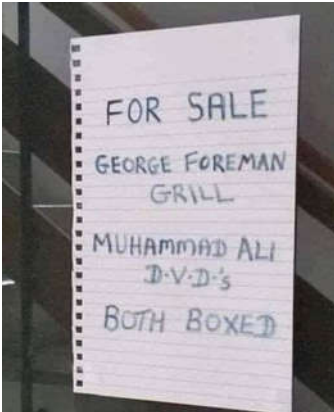 FOR SALE
GEORGE FOREMAN
GRILL
MUHAMMAD ALI
D-V-D-'s
BOTH BOXED